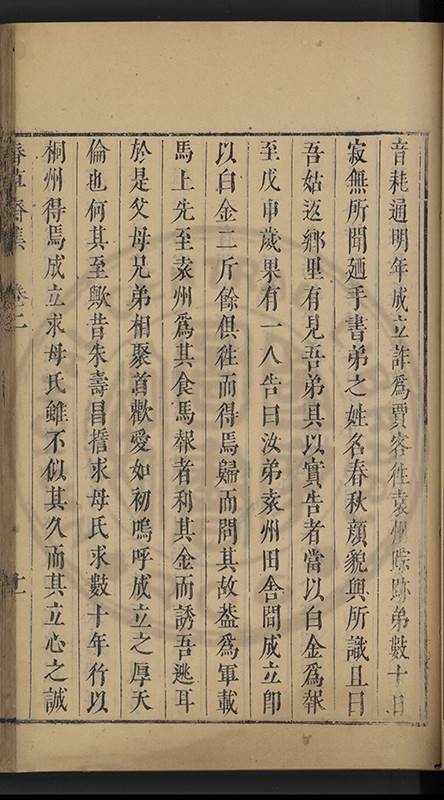 音耗通明年成立詐為賈客徃袁州踪跡弟數十日
寂無所聞廼手書弟之姓名春秋顏貌與所識且曰
吾姑返鄉里有見吾弟具以實告者當以白金為報
至戊申歲果有一人告曰汝弟袁州田舎間成立即
以白金二斤餘俱徃而得焉歸而問其故葢為軍載
馬上先至袁州為其食馬報者利其金而誘吾逃耳
於是父母兄弟相聚首歡愛如初嗚呼成立之厚天
倫也何其至歟昔朱壽昌擔求母氏求數十年行以
桐州得焉成立求母氏雖不似其久而其立心之誠
集 卷二